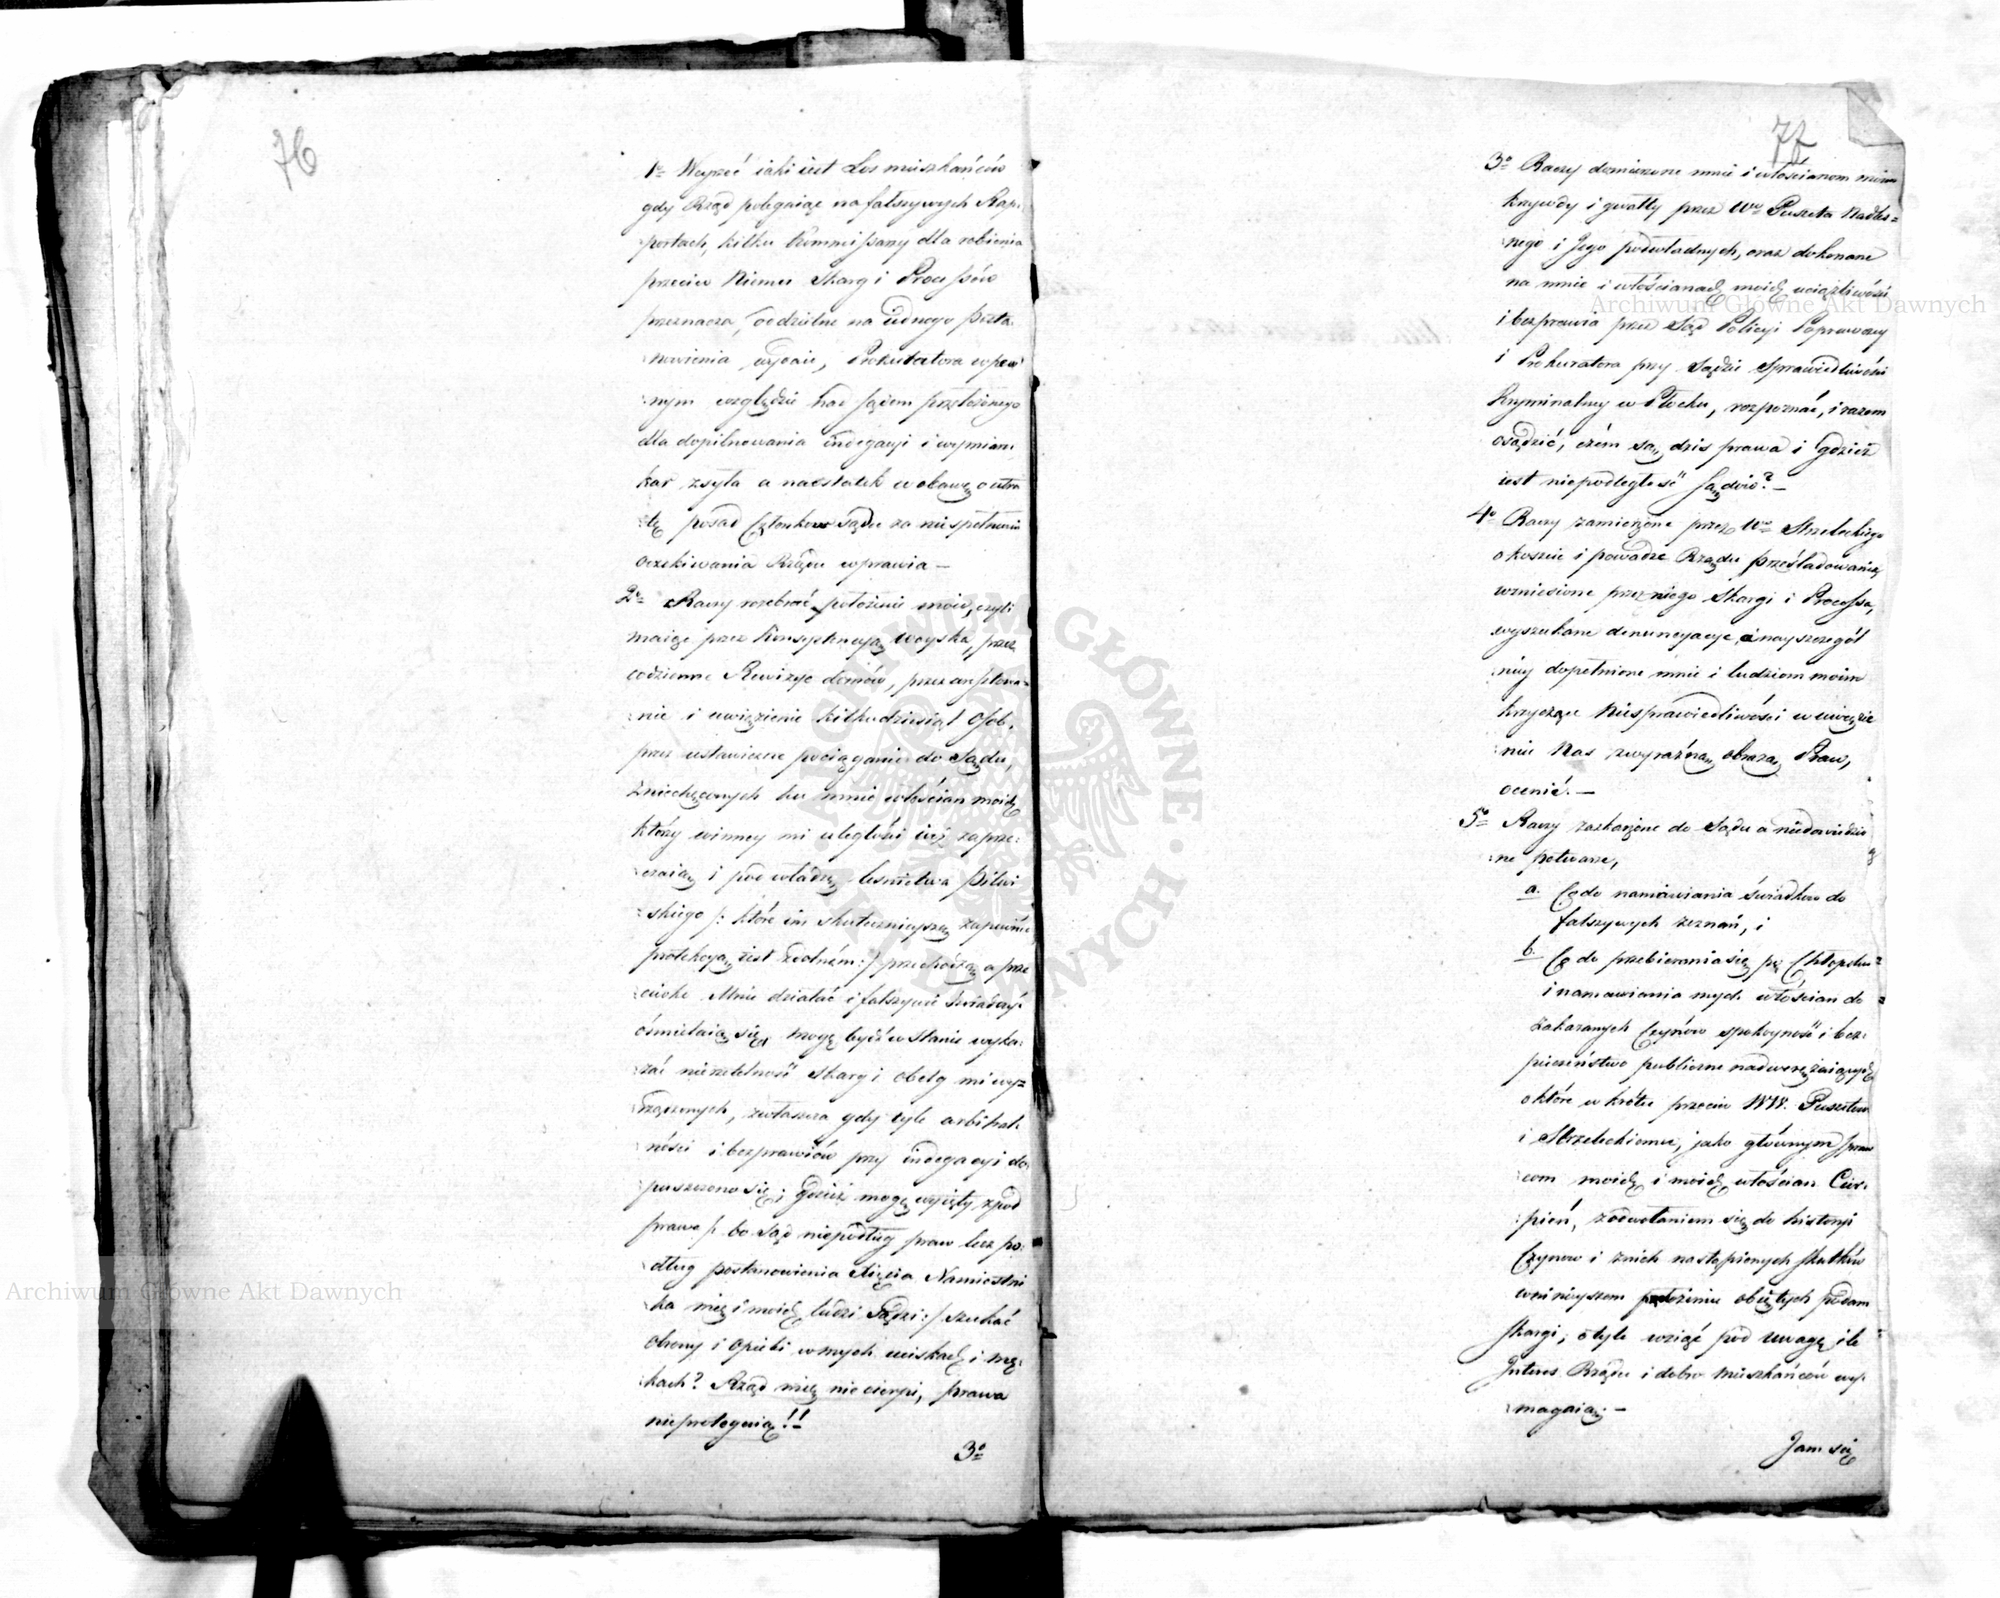 76
1º Weyrzeć iaki iest Los mieszkańców
gdy Rząd polegaiąc na fałszywych Rap-
portach, kilku Kommissarzy dla robienia
przeciw Niemu Skarg i Processów
przeznacza, oddzielne na iednego posta-
nowienia wydaie, Prokuratora w pew-
nym względzie nad Sądem przełożonego
dla dopilnowania indegacyi i wymiaru
kar zsyła a naostatek w obawę o utra-
tę posad Członków Sądu za niespełnienie
oczekiwania Rządu wprawia —
2º Raczy rozebrać położenie moie, czyli
maiąc przez Konsystencyą Woyska, przez
codzienne Rewizye domów, przez aresztowa-
nie i uwięzienie kilkudziesiąt Osob,
przez ustawiczne pociąganie do Sądu,
zniechęconych ku mnie włościan moich
którzy winney mi uległości iuż zaprze-
czaią i pod władzę leśnictwa
skiego /: które im skutecznieyszą zapewnić
protekcyą iest zdolném :/ przechodzą a prze-
ciwko Mnie działać i fałszywie świadczyć
ośmielaią się, mogę bydź w stanie wyka-
zać nierzetelność skarg i obelg mi wy-
rządzonych, zwłaszcza gdy tyle arbitral-
ności i bezprawiów przy indegacyi do-
puszczono się; gdzież mogę wyięty z pod
prawa /: bo Sąd nie podług praw lecz po-
dług postanowienia Xięcia Namiestni-
ka mię i moich ludzi Sądzi :/ szukać
obrony i opieki w mych uciskach i mę-
kach? Rząd mię nie cierpi, prawa
nie protegują!!
3º
77
3º Raczy domierzone mnie i włościanom moim
krzywdy i gwałty przez Wgo Puszeta Nadleś-
nego i Jego podwładnych, oraz dokonane
na mnie i włościanach moich uciążliwości
i bezprawia przez Sąd Policyi Poprawczey
i Prokuratora przy Sądzie Sprawiedliwości
Kryminalney w Płocku, rozpoznać, i razem
osądzić, czém są dziś prawa i gdzież
iest niepodległość Sądów? —
4º Raczy zamierzone przez Wgo Strzeleckiego
o koszcie i powadze Rządu prześladowanie,
wzniesione przez niego Skargi i Processa,
wyszukane denuncyacye, a nayszczegól-
niey dopełnione mnie i ludziom moim
krzyczące Niesprawiedliwości w uwięzie-
niu Nas z wyraźną obrazą Praw,
ocenić. —
5º Raczy zaskarżone do Sądu a niedowiedzio-
ne potwarze,
a. Co do namawiania świadków do
fałszywych zeznań, i
b. Co do przebierania się po Chłopsku
i namawiania mych włościan do
zakazanych Czynów spokoyność i bez-
pieczeństwo publiczne nadwerężaiących
o które w krótce przeciw WW. Puszetowi
i Strzeleckiemu, jako głównym spraw-
com moich i moich włościan Cier-
pień, z odwołaniem się do historyi
Czynów i z nich nastąpionych skutków
w ninieyszem położeniu obiętych podam
skargi, o tyle wziąć pod uwagę ile
Interes Rządu i dobro mieszkańców wy-
magaią. —
Jam się
Archiwum Główne Akt Dawnych
Archiwum Główne Akt Dawnych
ARCHIWUM GŁÓWNE AKT DAWNYCH